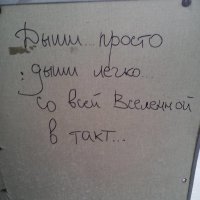 Дыши... просто
дыши легко...
со всей Вселенной
в такт...